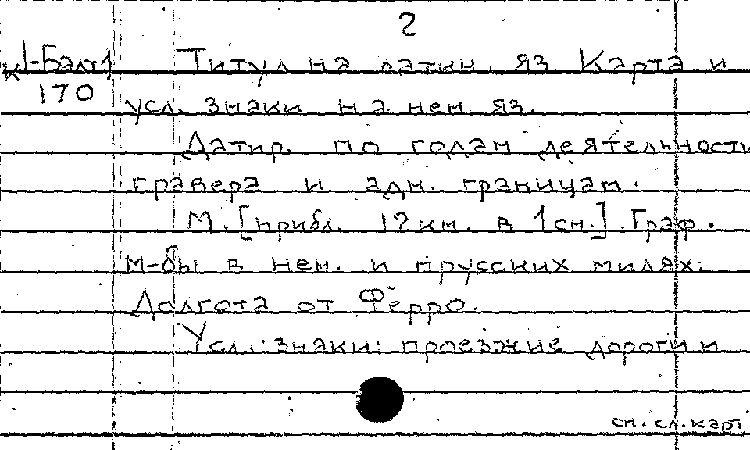 2
К1-Балт1 Титул на латин. яз. Карта и
170 усл. знаки на нем. яз.
Датир. по годам деятельности
гравера и адм. границам.
М. [прибл. 12 км. в 1 см.]. Граф.
м-бы в нем. и прусских милях.
Долгота от Ферро.
Усл. знаки: проезжие дороги и
см. сл. карт.